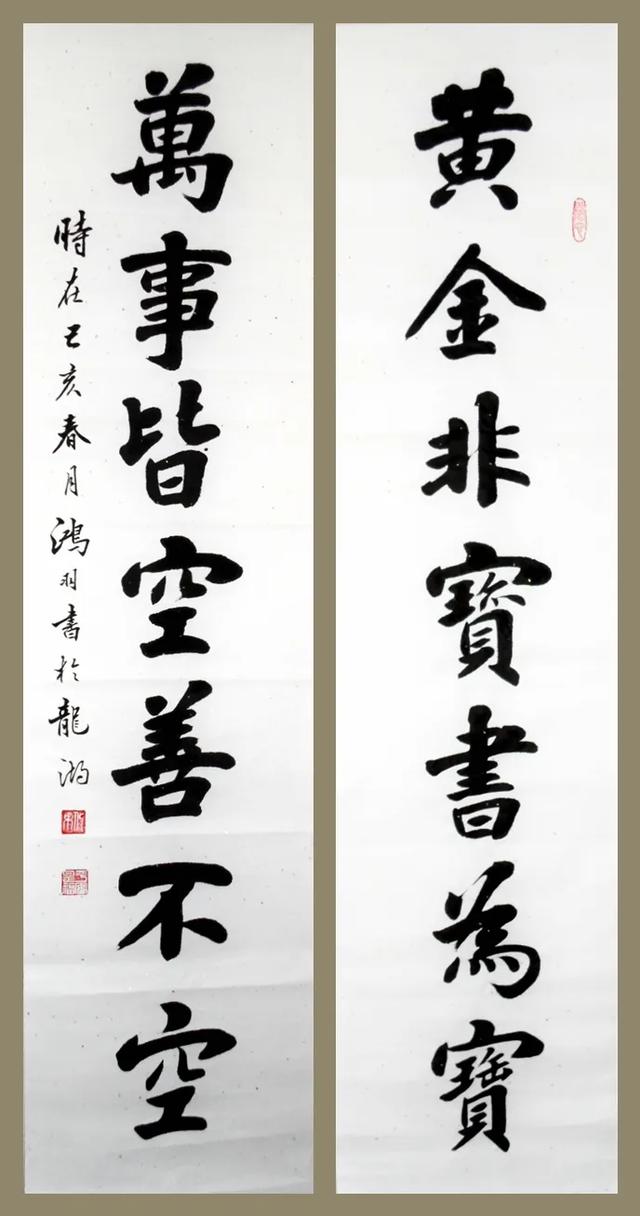 黄金非寶書為寶
萬事皆空善不空
時在己亥春月鴻羽書於龍湖